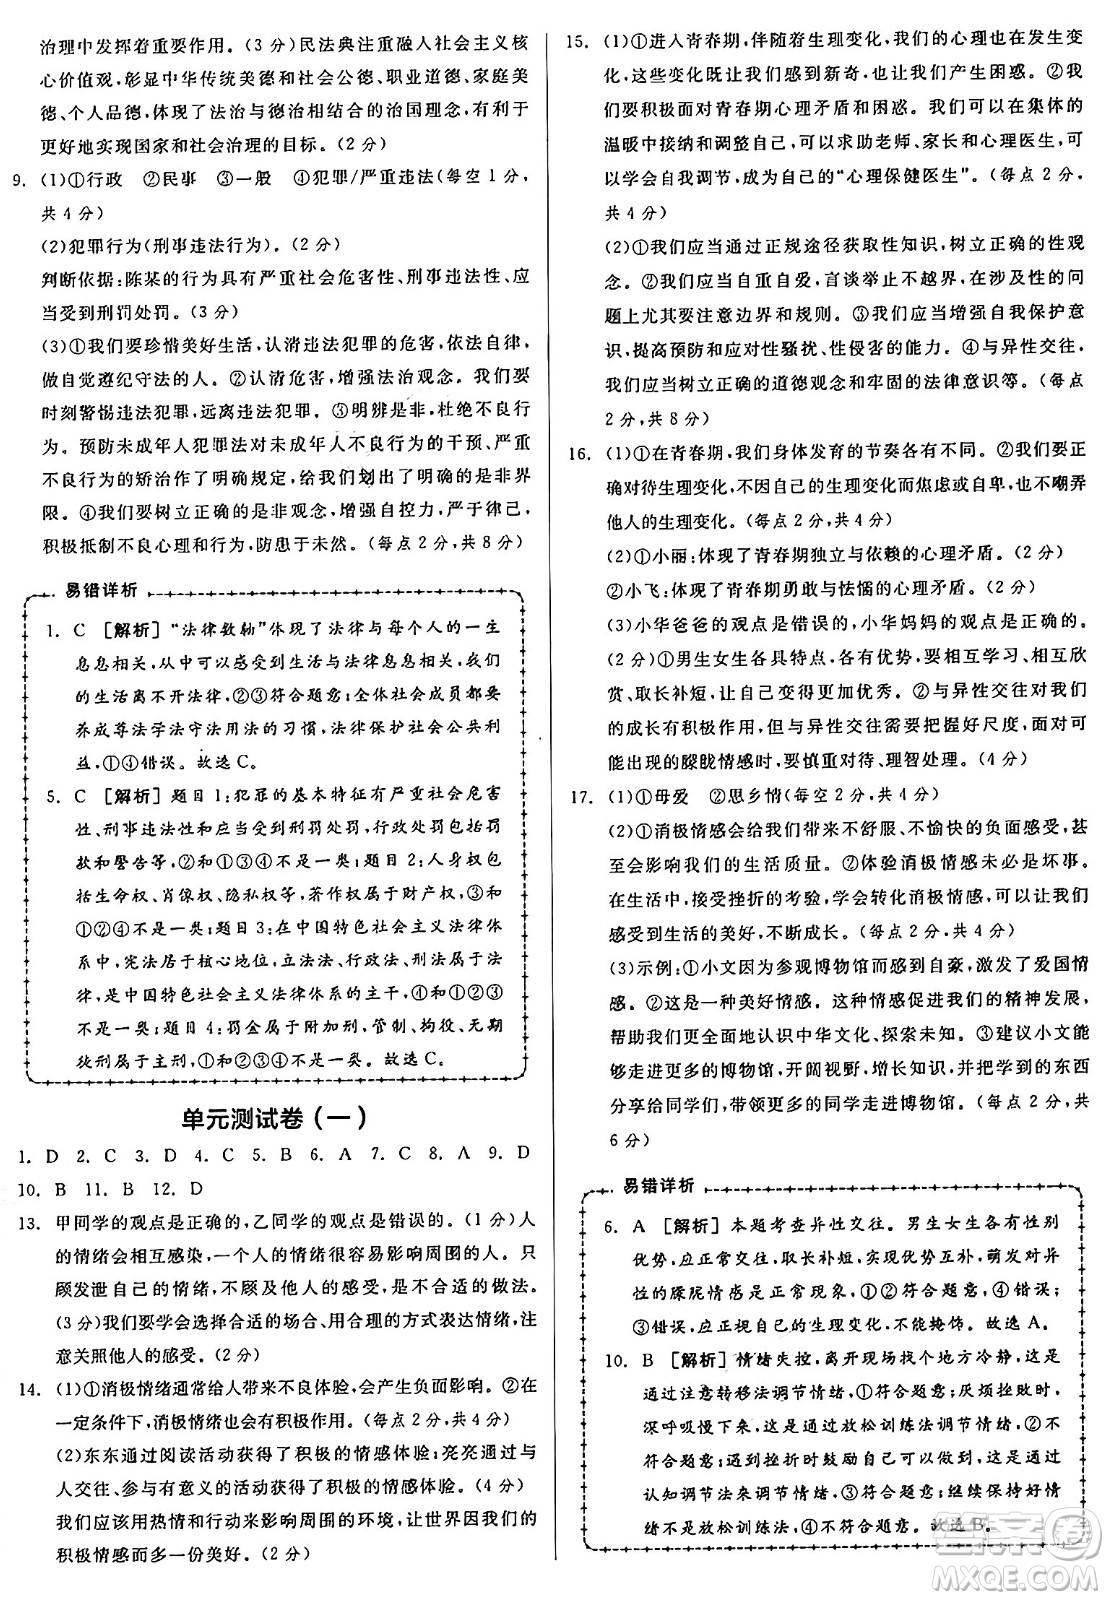 治理中发挥着重要作用。(3 分)民法典注重融入社会主义核
心价值观,彰显中华传统美德和社会公德、职业道德、家庭美
德、个人品德,体现了法治与德治相结合的治国理念,有利于
更好地实现国家和社会治理的目标。(2 分)
9. (1)①行政 ②民事 ③一般 ④犯罪/严重违法(每空 1 分,
共 4 分)
(2)犯罪行为(刑事违法行为)。(2 分)
判断依据:陈某的行为具有严重社会危害性、刑事违法性、应
当受到刑罚处罚。(3 分)
(3)①我们要珍惜美好生活,认清违法犯罪的危害,依法自律,
做自觉遵纪守法的人。②认清危害,增强法治观念。我们要
时刻警惕违法犯罪,远离违法犯罪。③明辨是非,杜绝不良行
为。预防未成年人犯罪法对未成年人不良行为的干预、严重
不良行为的矫治作了明确规定,给我们划出了明确的是非界
限。④我们要树立正确的是非观念,增强自控力,严于律己,
积极抵制不良心理和行为,防患于未然。(每点 2 分,共 8 分)
易错详析
1. C [解析] “法律数轴”体现了法律与每个人的一生
息息相关,从中可以感受到生活与法律息息相关,我们
的生活离不开法律,②③符合题意;全体社会成员都要
养成尊法学法守法用法的习惯,法律保护社会公共利
益,①④错误。故选 C。
5. C [解析] 题目 1:犯罪的基本特征有严重社会危害
性、刑事违法性、应受到刑罚处罚,行政处罚包括罚
款和警告等,②和①③④不是一类;题目 2:人身权包
括生命权、肖像权、隐私权等,著作权属于财产权,③和
①②④不是一类;题目 3:在中国特色社会主义法律体
系中,宪法居于核心地位,立法法、行政法、刑法属于宪
法,是中国特色社会主义法律体系的主干,④和①②③
不是一类;题目 4:罚金属于附加刑,管制、拘役、无期
徒刑属于主刑,①和②③④不是一类。故选 C。
单元测试卷(一)
1. D 2. C 3. D 4. C 5. B 6. A 7. C 8. A 9. D
10. B 11. B 12. D
13. 甲同学的观点是正确的,乙同学的观点是错误的。(1 分)人
的情绪会相互感染,一个人的情绪很容易影响周围的人。只
顾发泄自己的情绪,不顾及他人的感受,是不合适的做法。
(3 分)我们要学会选择合适的场合、用合理的方式表达情绪,注
意关照他人的感受。(2 分)
14. (1)①消极情绪通常给人带来不良体验,会产生负面影响。②在
一定条件下,消极情绪也会有积极作用。(每点 2 分,共 4 分)
(2)东东通过阅读活动获得了积极的情感体验;亮亮通过与
人交往、参与有意义的活动获得了积极的情感体验。(4 分)
我们应该用热情和行动来影响周围的环境,让世界因我们的
积极情感而多一份美好。(2 分)
15. (1)①进入青春期,伴随着生理变化,我们的心理也在发生变
化,这些变化让我们感到新奇,也让我们产生困惑。②我
们要积极面对青春期心理矛盾和困惑。我们可以在集体的
温暖中接纳和调适,可以求助老师、家长和心理医生,也可
以学会自我调节,成为自己的“心理保健医生”。(每点 2 分,
共 4 分)
(2)①我们应当通过正规途径获取性知识,树立正确的性观
念。②我们应当自重自爱,言谈举止不越界,在涉及性的问
题上尤其要注意边界和规则。③我们应当增强自我保护意
识,提高预防和应对性骚扰、性侵害的能力。④与异性交往,
我们应当树立正确的道德观念和牢固的法律意识等。(每点
2 分,共 8 分)
16. (1)①在青春期,我们身体发育的节奏各有不同。②我们要正
确对待生理变化,不因自己的生理变化而自卑,也不嘲弄
他人的生理变化。(每点 2 分,共 4 分)
(2)①小丽:体现了青春期独立与依赖的心理矛盾。(2 分)
②小飞:体现了青春期勇敢与怯懦的心理矛盾。(2 分)
(3)小华爸爸的观点是错误的,小华妈妈的观点是正确的。
(2 分)①男生女生各具特点,各有优势,要相互学习、相互欣
赏、取长补短,让自己变得更加优秀。②与异性交往对我们
的成长有积极作用,与异性交往需要把握好尺度,面对可
能出现的朦胧情感时,要慎重对待、理智处理。(4 分)
17. (1)①母爱 ②思乡情(每空 2 分,共 4 分)
(2)①消极情感会给我们带来不舒服、不愉快的负面感受,甚
至会影响我们的生活质量。②体验消极情感未必是坏事。
在生活中,接受挫折的考验,学会转化消极情感,会让我们
感受到生活的美好,不断成长。(每点 2 分,共 4 分)
(3)示例:①小文因为参观博物馆而感到自豪,激发了爱国情
感。②这是一种美好情感。这种情感促进我们的精神发展,
帮助我们更全面地认识中华文化、探索未知。③建议小文能
够参观更多的博物馆,开阔视野,同时能将了解到的东西
分享给同学们,带领更多的同学走进博物馆。(每点 2 分,共
6 分)
易错详析
6. A [解析] 本题考查异性交往。男生女生各有性别
优势,应正常交往,取长补短,实现优势互补,萌发对异
性的朦胧情感是正常现象,①②符合题意,④错误;
③错误,应正视自己的生理变化,不能掩饰。故选 A。
10. B [解析] 情绪失控,离开现场找个地方冷静,这是
通过注意转移法调节情绪,①符合题意;厌烦挫败时,
深呼吸慢下来,这是通过放松训练法调节情绪,②不
符合题意;遇到挫折时鼓励自己没关系,这是通过
认知调节法来调节情绪,③符合题意;继续保持好情
绪不是放松训练法,④不符合题意。故选 B。
答案圈
MXQE.COM